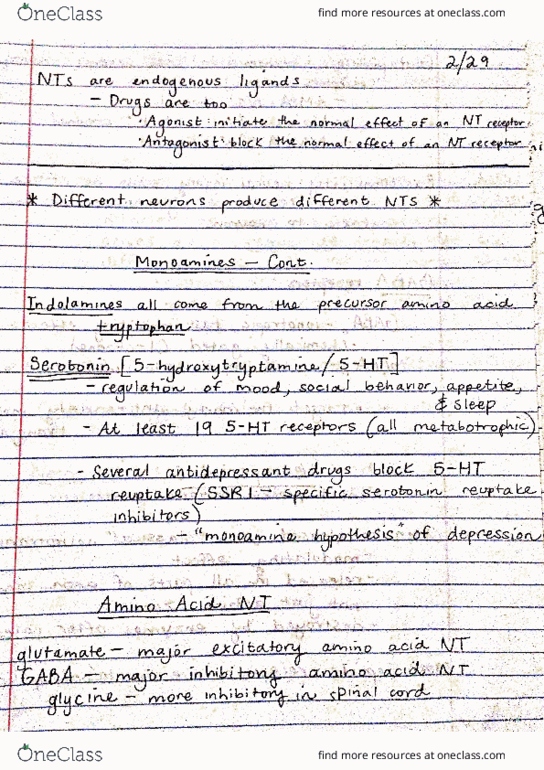 OneClass
find more resources at oneclass.com
2/29
NTs are endogenous ligands
- Drugs are too
· Agonist: initiate the normal effect of an NT receptor
· Antagonist: block the normal effect of an NT receptor
* Different neurons produce different NTS *
Monoamines - Cont.
Indolamines all come from the precursor amino acid
tryptophan
Serotonin [5-hydroxytryptamine / 5-HT]
- regulation of mood, social behavior, appetite,
& sleep
- At least 19 5-HT receptors (all metabotrophic)
- Several antidepressant drugs block 5-HT
reuptake (SSRI - specific serotonin reuptake
inhibitors)
- "monoamine hypothesis" of depression
Amino Acid NT
glutamate - major excitatory amino acid NT
GABA - major inhibitory amino acid NT
glycine - more inhibitory in spinal cord
OneClass
find more resources at oneclass.com